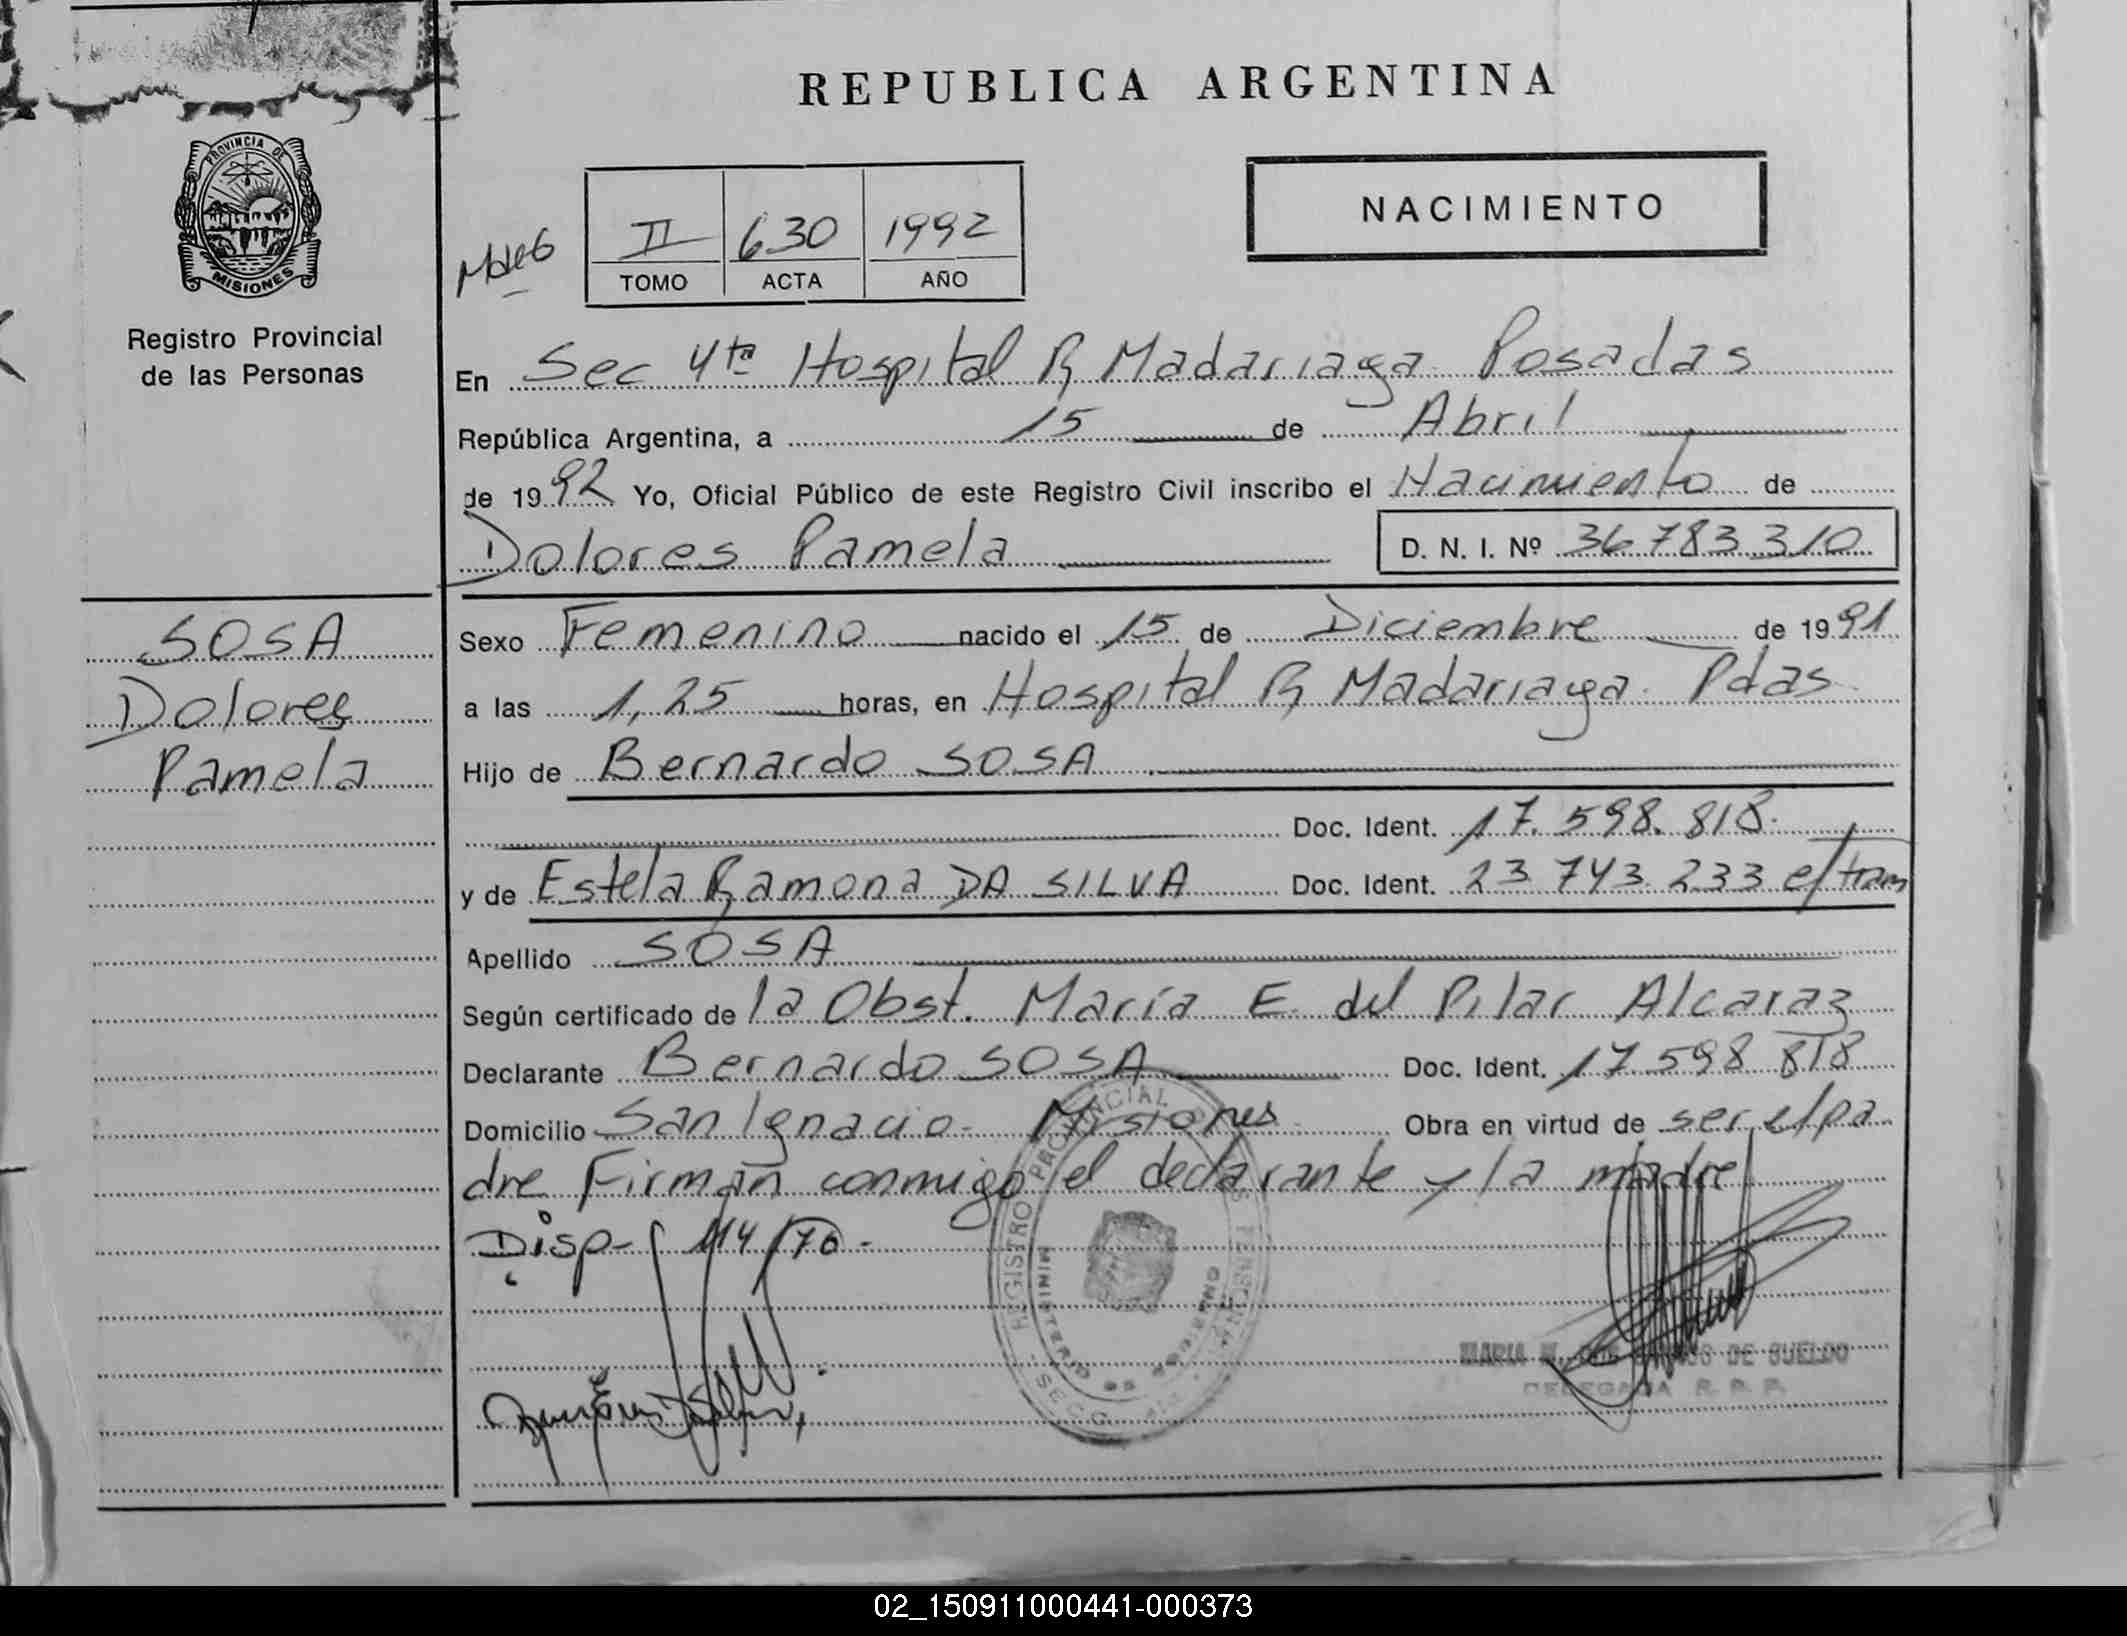 REPUBLICA ARGENTINA
PROVINCIA DE
MISIONES
Registro Provincial
de las Personas
NACIMIENTO
II 630 1992
TOMO ACTA AÑO
En Sec 4ta Hospital R Madariaga Posadas
República Argentina, a 15 de Abril
de 1992 Yo, Oficial Público de este Registro Civil inscribo el Nacimiento de
Dolores Pamela D. N. I. Nº 36 783 310
SOSA
Dolores
Pamela
Sexo Femenino nacido el 15 de Diciembre de 1991
a las 1,25 horas, en Hospital R Madariaga Pdas
Hijo de Bernardo SOSA
Doc. Ident. 17.598.818.
y de Estela Ramona DA SILVA Doc. Ident. 23 743 233 e/tram
Apellido SOSA
Según certificado de la Obst. María E. del Pilar Alcaraz
Declarante Bernardo SOSA Doc. Ident. 17 598 818
Domicilio San Ignacio- Misiones Obra en virtud de ser el pa
dre Firman conmigo el declarante y la madre
Disp- 114/70.-
REGISTRO PROVINCIAL
MINISTERIO DE GOBIERNO
SECC.
MARIA DE SUELDO
DELEGADA R. P. P.
02_150911000441-000373